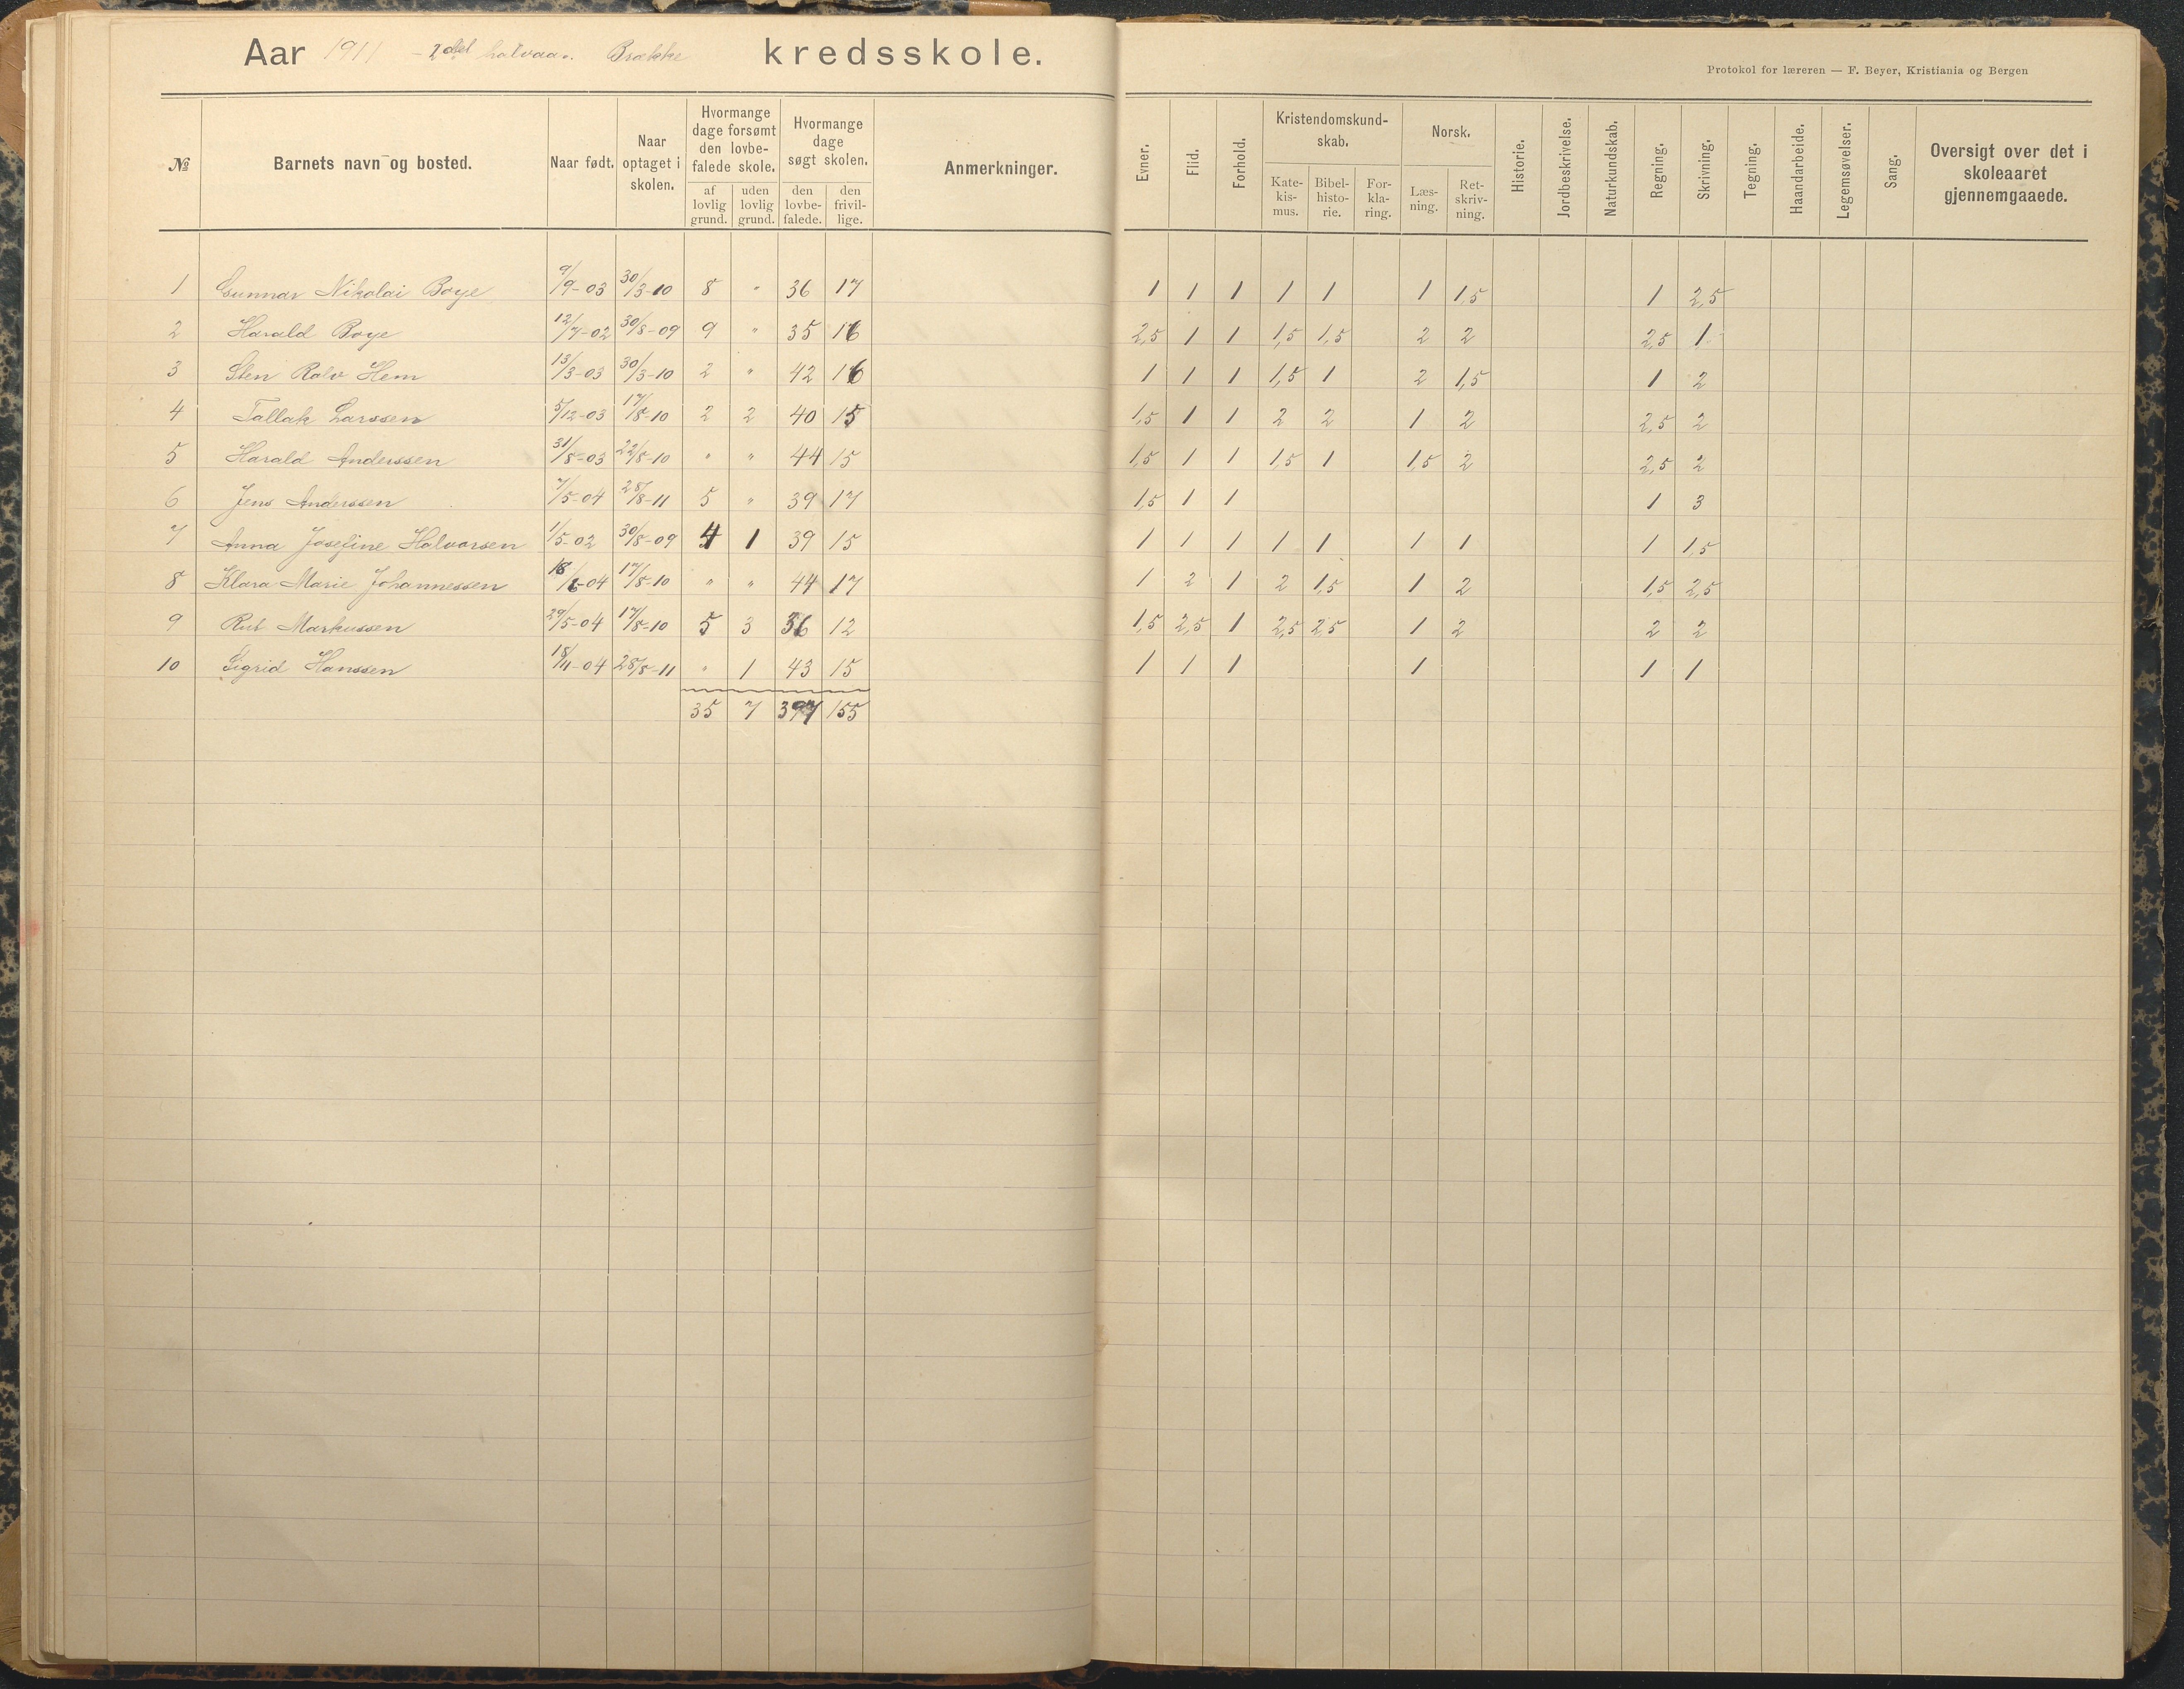 Aar 1911 - 2det halvaar. Brække kredsskole.
Protokol for læreren — F. Beyer, Kristiania og Bergen
№ Barnets navn og bosted. Naar født. Naar optaget i skolen. Hvormange dage forsømt den lovbefalede skole. af lovlig grund. uden lovlig grund. Hvormange dage søgt skolen. den lovbefalede. den frivillige. Anmerkninger. Evner. Flid. Forhold. Kristendomskundskab. Katekismus. Bibelhistorie. Forklaring. Norsk. Læsning. Retskrivning. Historie. Jordbeskrivelse. Naturkundskab. Regning. Skrivning. Tegning. Haandarbeide. Legemsøvelser. Sang. Oversigt over det i skoleaaret gjennemgaaede.
1 Gunnar Nikolai Boye 9/9-03 30/3-10 8 " 36 17 1 1 1 1 1 1 1,5 1 2,5
2 Harald Boye 12/7-02 30/8-09 9 " 35 16 2,5 1 1 1,5 1,5 2 2 2,5 1
3 Sten Ralv Hem 13/3-03 30/3-10 2 " 42 16 1 1 1 1,5 1 2 1,5 1 2
4 Tallak Larssen 5/12-03 17/8-10 2 2 40 15 1,5 1 1 2 2 1 2 2,5 2
5 Harald Anderssen 31/8-03 22/8-10 " " 44 15 1,5 1 1 1,5 1 1,5 2 2,5 2
6 Jens Anderssen 7/5-04 28/8-11 5 " 39 17 1,5 1 1 1 3
7 Anna Josefine Halvorsen 1/5-02 30/8-09 4 1 39 15 1 1 1 1 1 1 1 1 1,5
8 Klara Marie Johannessen 18/6-04 17/8-10 " " 44 17 1 2 1 2 1,5 1 2 1,5 2,5
9 Rut Markussen 29/5-04 17/8-10 5 3 36 12 1,5 2,5 1 2,5 2,5 1 2 2 2
10 Sigrid Hanssen 18/11-04 28/8-11 " 1 43 15 1 1 1 1 1 1
35 7 397 155